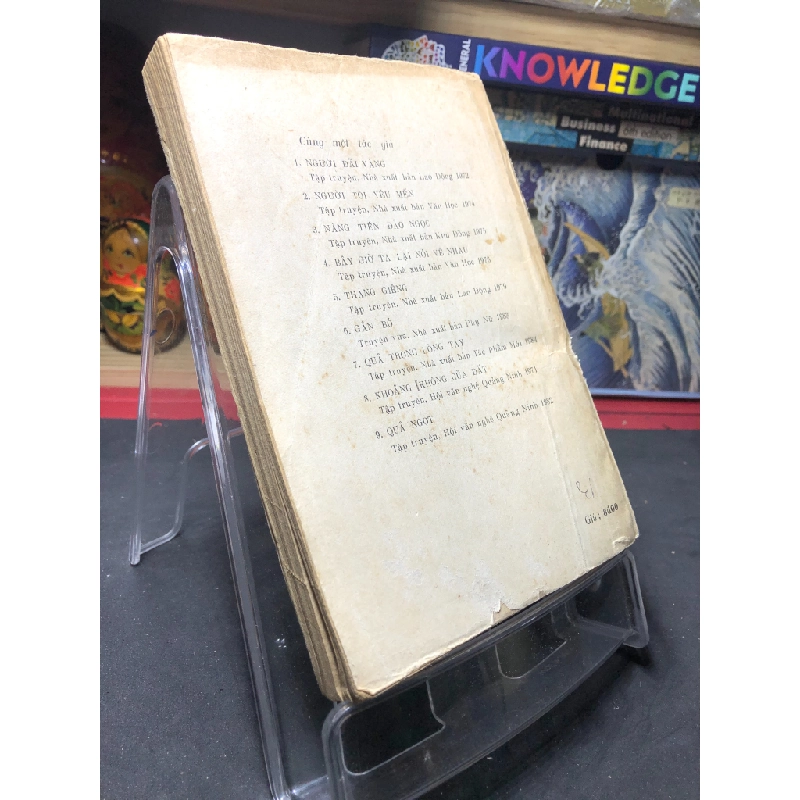 GENERAL
KNOWLEDGE
Multinational
Business
Finance
6th edition
Cùng một tác giả
1. NGƯỜI ĐÃI VÀNG
Tập truyện, Nhà xuất bản Lao Động
2. NGƯỜI TÔI YÊU MẾN
Tập truyện, Nhà xuất bản Văn Học
3. NÀNG TIÊN ĐẢO NGỌC
Tập truyện, Nhà xuất bản Kim Đồng
4. BÂY GIỜ TA LẠI NÓI VỀ NHAU
Tập truyện, Nhà xuất bản Văn Học
5. THÁNG GIÊNG
Tập truyện, Nhà xuất bản Lao Động
6. GẮN BÓ
Truyện vừa, Nhà xuất bản Phụ Nữ
7. QUẢ TRỨNG LÒNG TAY
Tập truyện, Nhà xuất bản Tác Phẩm Mới
8. KHOẢNG KHÔNG CỦA ĐẤT
Tập truyện, Hội văn nghệ Quảng Ninh
9. QUẢ NGỌT
Tập truyện, Hội văn nghệ Quảng Ninh
Giá: